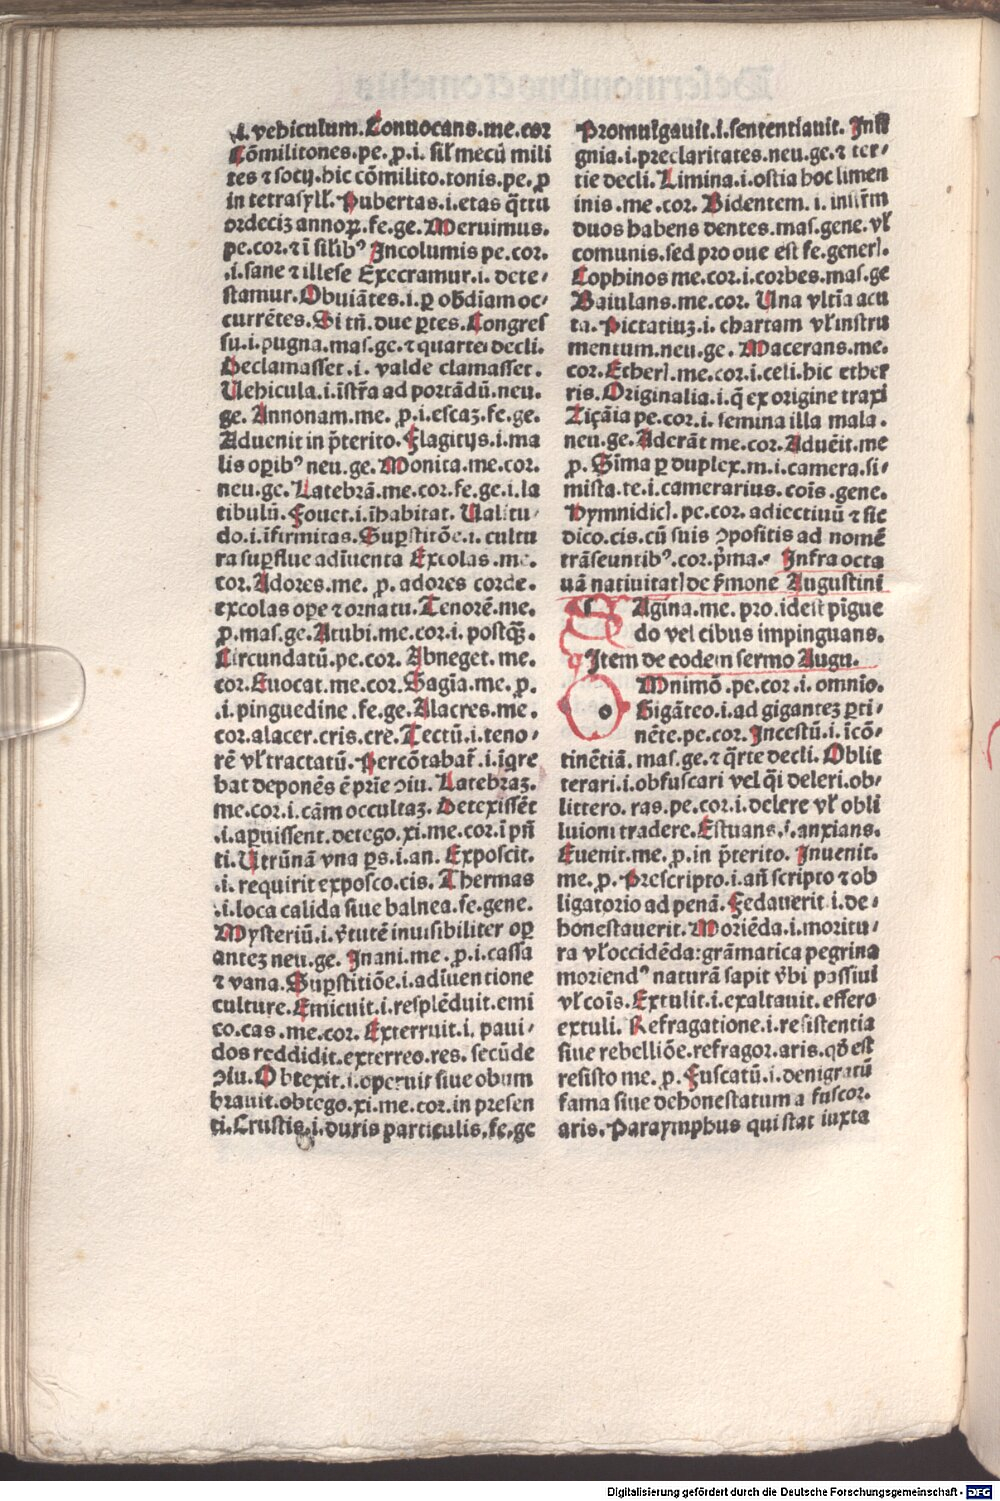 .i. vehiculum. Conuocans. me. cor
Cōmilitones. pe. ꝓ. i. sil̄ mecū mili
tes ⁊ socij. hic cōmilito. tonis. pe. ꝓ
in tetrasyll̄. Pubertas. i. etas q̄ttu
ordecīꝫ annoꝝ. fe. ge. Meruimus.
pe. cor. ⁊ ī silibꝰ Incolumis pe. cor.
.i. sane ⁊ illese Execramur. i. dete⸗
stamur. Obuiātes. i. ꝑ obōiam oc⸗
currētes. Si tn̄. due ꝑtes. Congres
su. i. pugna. mas. ge. ⁊ quarte decli.
Declamasset. i. valde clamasset.
Uehicula. i. īstr̄a ad portādū. neu.
ge. Annonam. me. ꝓ. i. escaꝫ. fe. ge.
Aduenit in p̄terito. Flagitijs. i. ma
lis oꝑibꝰ neu. ge. Monita. me. cor.
neu. ge. Latebrā. me. cor. fe. ge. i. la
tibulū. Fouet. i. īhabitat. Ualitu⸗
do. i. īfirmitas. Suꝑstitōe. i. cultu
ra suꝑflue adīuenta Excolas. me.
cor. Adores. me. ꝓ. adores corde.
excolas ope ⁊ ornatu. Tenorē. me.
ꝓ. mas. ge. Atubi. me. cor. i. postꝙ̄.
Circundatū. pe. cor. Abneget. me.
cor. Euocat. me. cor. Sagīa. me. ꝓ.
.i. pinguedine. fe. ge. Alacres. me.
cor. alacer. cris. cre. Tectū. i. teno⸗
rē vl̄ tractatū. Percōtabat̄. i. īq̄re
bat deponēs ē prīe ɔiu. Latebraꝫ.
me. cor. i. cām occultaꝫ. Detexissēt
.i. aꝑuissent. detego. xi. me. cor. ī pn̄
ti. Utrūnā vna ꝑs. i. an. Exposcit.
.i. requirit exposco. cis. Thermas
.i. loca calida siue balnea. fe. gene.
Mysteriū. i. v̄tutē inuisibiliter oꝑ
anteꝫ neu. ge. Inani. me. ꝓ. i. cassa
⁊ vana. Suꝑstitiōe. i. adīuentione
culture. Emicuit. i. resplēduit. emi
co. cas. me. cor. Exterruit. i. paui⸗
dos reddidit. exterreo. res. secūde
ɔiu. Obtexit. i. operuit siue obum
brauit. obtego. xi. me. cor. in presen
ti. Crustis. i. duris particulis. fe. ge
Promulgauit. i. sententiauit. Insi
gnia. i. preclaritates. neu. ge. ⁊ ter⸗
tie decli. Limina. i. ostia hoc limen
inis. me. cor. Bidentem. i.
duos habens dentes. mas. gene. vl̄
comunis. sed pro oue est fe. gener̄l.
Cophinos me. cor. i. corbes. mas. ge
Baiulans. me. cor. Una vltīa acu
ta. Pictatiuꝫ. i. chartam vl̄ instru
mentum. neu. ge. Macerans. me.
cor. Etherl. me. cor. i. celi. hic ether
ris. Originalia. i. q̄ ex origine traxi
Tiçāia pe. cor. i. semina illa mala.
neu. ge. Aderāt me. cor. Aduēit. me
ꝓ. Sīma ꝑ duplex. m. i. camera. si⸗
mista. te. i. camerarius. coīs. gene.
Hymnidicl. pe. cor. adiectiuū ⁊ sic
dico. cis. cū suis ɔpositis ad nomē
trāseuntibꝰ. cor. p̄ma. Infra octa
uā natiuitatl de s̄mone Augustini
SAgina. me. pro. idest pīgue
do vel cibus impinguans.
Item de eodem sermo Augu.
OMnimō. pe. cor. i. omnīo.
Gigāteo. i. ad giganteꝫ ꝑti⸗
nēte. pe. cor. Incestū. i. īcō⸗
tinētiā. mas. ge. ⁊ q̄rte decli. Oblit
terari. i. obfuscari vel q̄i deleri. ob⸗
littero. ras. pe. cor. i. delere vl̄ obli
luioni tradere. Estuans. i. anxians.
Euenit. me. ꝓ. in p̄terito. Inuenit.
me. ꝓ. Prescripto. i. an̄ scripto ⁊ ob
ligatorio ad penā. Fedauerit. i. de⸗
honestauerit. Moriēda. i. moritu⸗
ra vl̄ occidēda: grāmatica pegrina
moriendꝰ naturā sapit v̄bi passiui
vl̄ coīs. Extulit. i. exaltauit. effero
extuli. Refragatione. i. resistentia
siue rebelliōe. refragor. aris. qḋ est
resisto me. ꝓ. Fuscatū. i. denigratū
fama siue dehonestatum a fuscor.
aris. Paraymphus qui stat iuxta
Digitalisierung gefördert durch die Deutsche Forschungsgemeinschaft - DFG